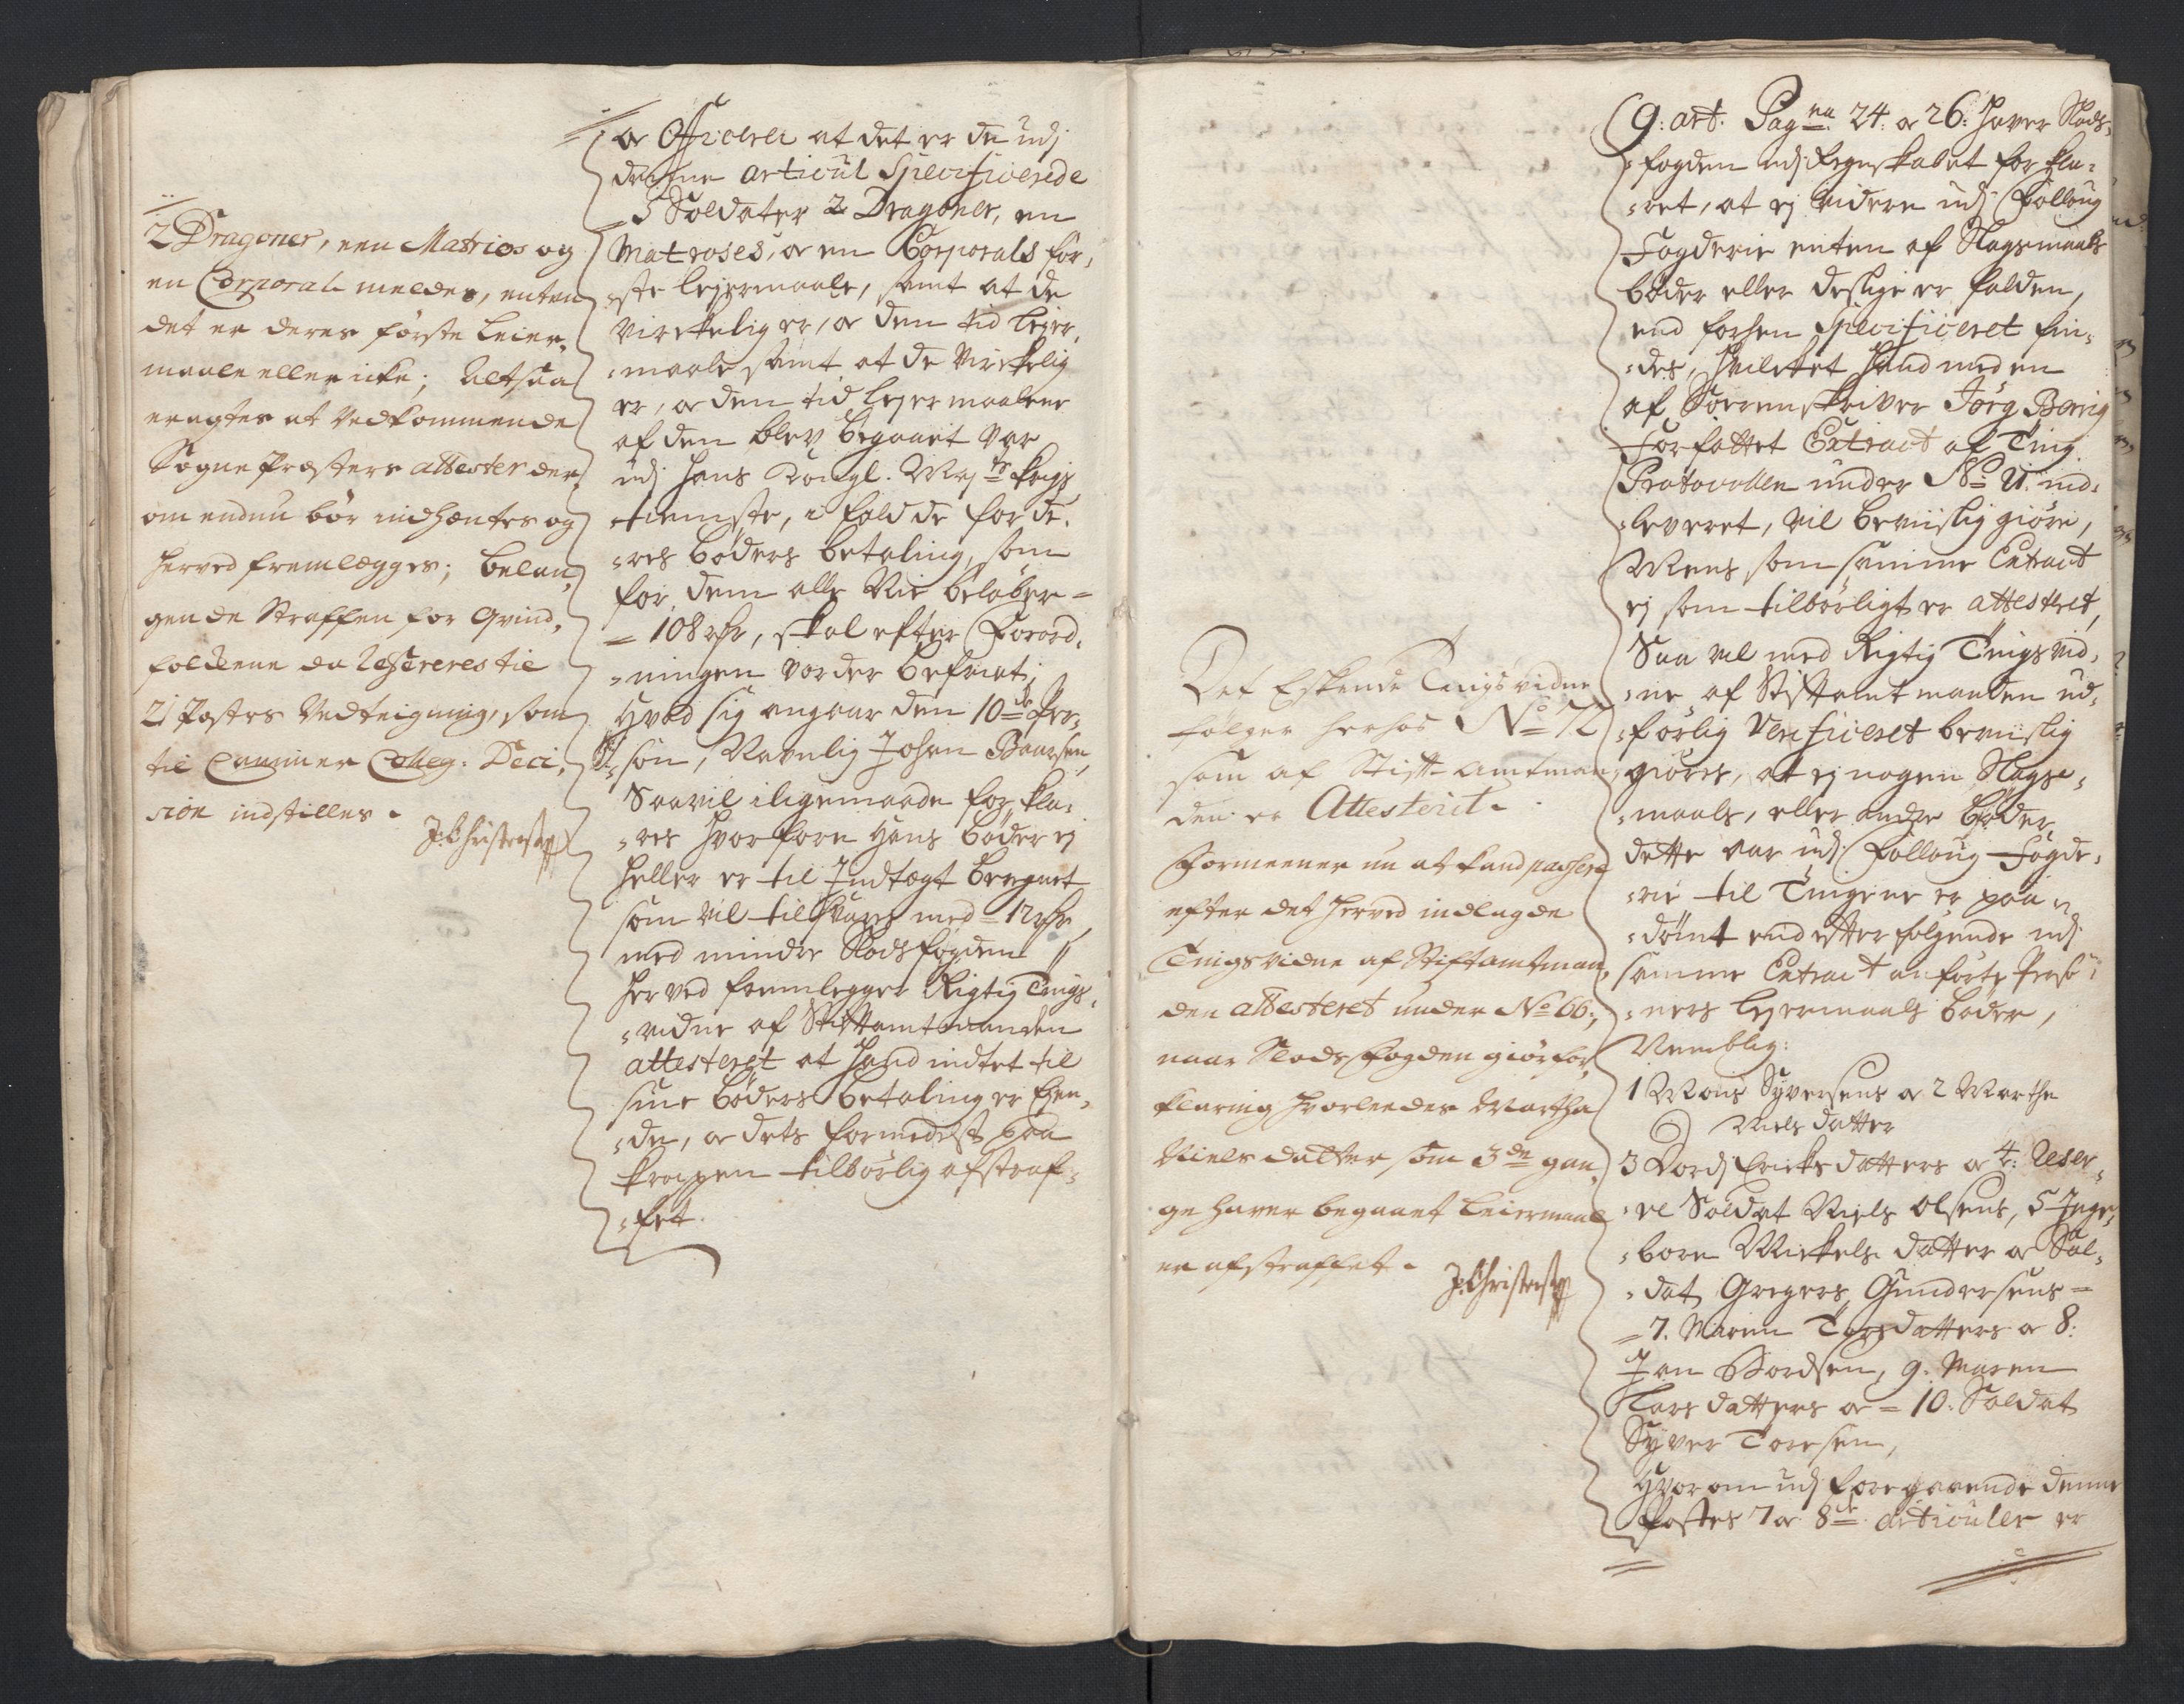 2 Dragoner, een Matrios og
en Corporal meldes, enten
det er deres første Leier,
maale eller icke; Altsaa
eragtes at Vedkommende
Sogne Præsters attester der,
om endnu bør indhæntes og
herved fremlægges; belan,
gende Straffen for Qvind,
folckene da refereres til
21 Postes Vedteigning, som
til Cammer Colleg: Deci,
sion indstilles.
J: Christens
og Officerer at det er de udj
denne articul Specificerede
5 Soldater 2 Dragoner, en
Matroses, og en Corporals før,
ste lejermaale, samt at de
virckelig er, og den tid lejer,
maale samt at de virckelig
er, og den tid lejermaalene
af dem blev begaaet var
udj Hans Kongl. Maj:ts krigs
tienneste, i fald de for de,
res bøders betaling, som
for dem alle Nie beløber =
= 108 rdr, skal efter Forord,
ningen vorder befriet;
Hvad sig angaar den 10de Per,
son, Navnlig Johan Baarsen,
Saa vil i ligemaade for kla,
res hvorfore Hans bøder ej
heller er til Indtægt beregnet
som vil tilsvares med = 12 rdr,
med mindre Slodsfogden
herved fremlegger Rigtig Tings,
vidne af Stiftamtmanden
attesteret at hand indtet til
sine bøders betaling er Ejen,
de, og dets formedelst paa
kroppen tilbørlig afstraf,
fet.
Det Eskende Tingsvidne
følger herhos No 72
som af Stift-amtman,
den er Attesterit.
Formeener nu at kand passere
efter det herved indlagde
Tingsvidne af Stiftamtman,
den attesteret under No 66:,
naar Slodsfogden giør for,
klaring hvorledes Martha
Niels datter som 3de gan,
ge haver begaaet Leiermaal
er afstraffet.
J: Christens
9: art. Pagna 24: og 26: haver Slods,
fogden udj Regnskabet for kla,
ret, at ej videre udj Folloug
Fogderie enten af Slagsmaals
bøder eller deslige er falden,
end forhen Specificeret fin,
des, hvilcket hand med en
af Sorrenskriver Jørg Borrig
Forfattet Extract af Ting
Protocollen under No 21. ind,
leveret, vil beviislig giøre,
Mens som samme Extract
ej som tilbørligt er attesteret,
Saa vil med Rigtig Tingsvid,
ne af Stiftamtmanden ud,
førlig Verificeret beviislig
giøres, at ej nogen Slags,
maals, eller andre bøder
dette aar udj Follaug Fogde,
rie til Tingene er paa
dømt end efterfølgende udj
samme Extract anførte Perso,
ners lejermaals bøder,
Nemblig:
1 Mons Syversens og 2 Marthe
Niels datter
3 Dordj Ericksdatters og 4: Reser,
ve Soldat Niels Olsens, 5 Inge,
bore Mickels datter og Sol,
dat Gregers Gundersens =
= 7. Maren Torsdatters og 8:
Jan Bordsen, 9. Maren
Larsdatters og = 10: Soldat
Syver Toresen,
Hvor om udj foregaaende denne
Postes 7 og 8de articuler er